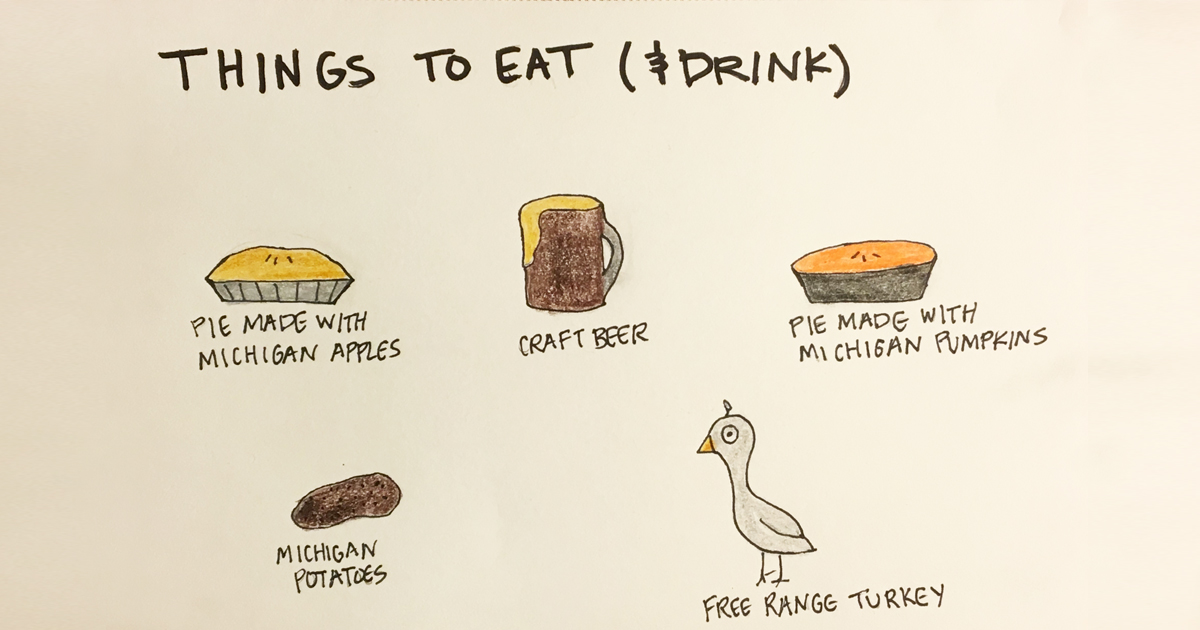 THINGS TO EAT (& DRINK)
PIE MADE WITH
MICHIGAN APPLES
CRAFT BEER
PIE MADE WITH
MICHIGAN PUMPKINS
MICHIGAN
POTATOES
FREE RANGE TURKEY